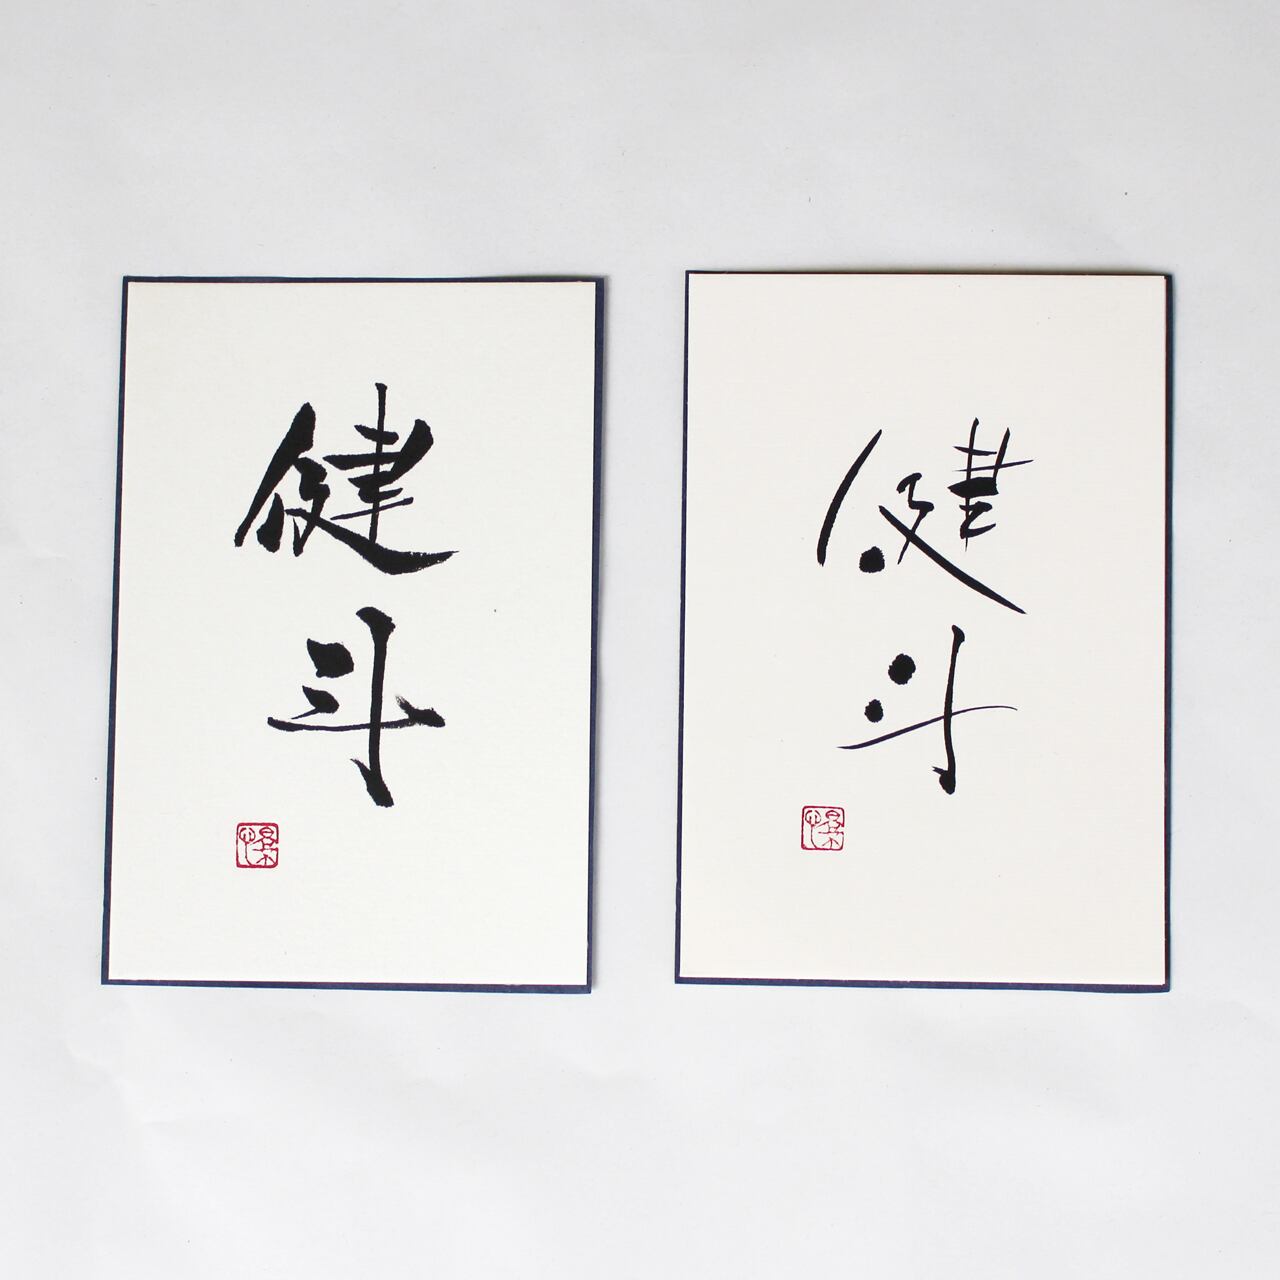 健斗
健斗